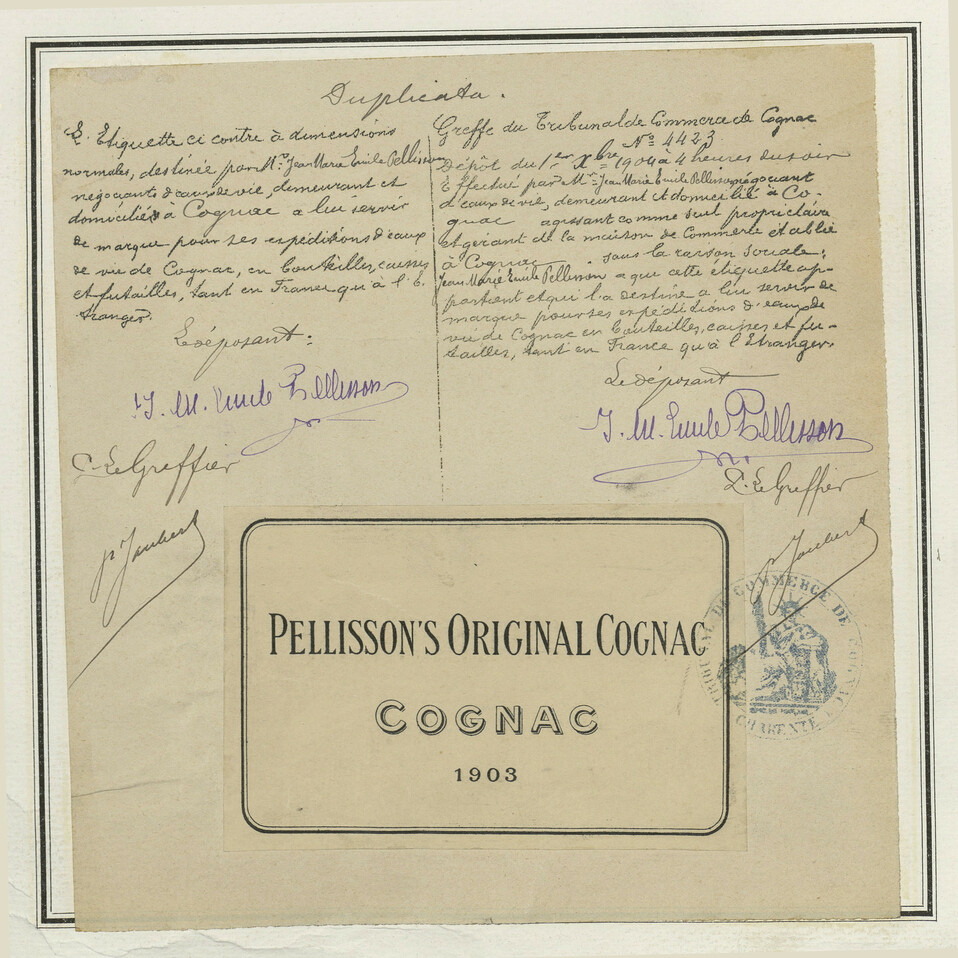 Duplicata.
L'Etiquette ci contre à dimensions
normales, destinée par Mr. Jean Marie Emile Pellisson
négociants d'eaux de vie, demeurant et
domiciliés à Cognac a lui servir
de marque pour ses expéditions d'eaux
de vie de Cognac, en bouteilles, caisses
et futailles, tant en France qu'à l'E-
tranger.
Le déposant:
J. M. Emile Pellisson
Le Greffier
pr Jaubert
Greffe du Tribunal de Commerce de Cognac
No 4423
Dépôt du 1er Xbre 1904 à 4 heures du soir
Effectué par Mr Jean Marie Emile Pellisson négociant
d'eaux de vie, demeurant et domicilié à Co-
gnac agissant comme seul propriétaire
et gérant de la maison de Commerce établie
à Cognac sous la raison sociale:
Jean Marie Emile Pellisson a que cette étiquette ap-
partient et qu'il l'a destine a lui servir de
marque pour ses expéditions d'eaux de
vie de Cognac en bouteilles, caisses et fu-
tailles, tant en France qu'à l'Etranger.
Le déposant
J. M. Emile Pellisson
Le Greffier
pr Jaubert
PELLISSON'S ORIGINAL COGNAC
COGNAC
1903
TRIBUNAL DE COMMERCE DE COGNAC
CHARENTE